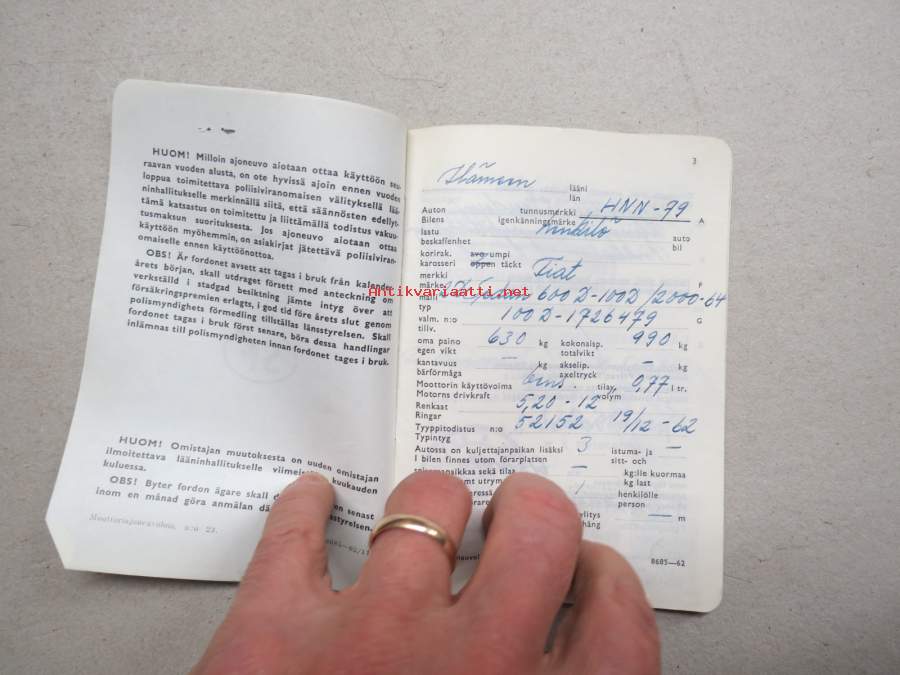 HUOM! Milloin ajoneuvo aiotaan ottaa käyttöön seu-
raavan vuoden alusta, on ote hyvissä ajoin ennen vuoden
loppua toimitettava poliisiviranomaisen välityksellä lää-
ninhallitukselle merkinnällä siitä, että säännösten edellyt-
tämä katsastus on toimitettu ja liittämällä todistus vakuu-
tusmaksun suorituksesta. Jos ajoneuvo aiotaan ottaa
käyttöön myöhemmin, on asiakirjat jätettävä poliisiviran-
omaiselle ennen käyttöönottoa.
OBS! Är fordonet avsett att tagas i bruk från kalender-
årets början, skall utdraget försett med anteckning om
verkställd i stadgad besiktning jämte intyg över att
försäkringspremien erlagts, i god tid före årets slut genom
polismyndighets förmedling tillställas länsstyrelsen. Skall
fordonet tagas i bruk först senare, böra dessa handlingar
inlämnas till polismyndigheten innan fordonet tages i bruk.
HUOM! Omistajan muutoksesta on uuden omistajan
ilmoitettava lääninhallitukselle kuukauden
kuluessa.
OBS! Byter fordon ägare skall en senast
inom en månad göra anmälan
Moottoriajoneuvolom. n:o 23.
3
Hämeen lääni
län
Auton tunnusmerkki HNN-79 A
Bilens igenkänningsmärke
laatu henkilö auto
beskaffenhet bil
korirak. avo umpi
karosseri öppen täckt Fiat
merkki
märke
malli 600 D-100D/2000-64
typ
valm. n:o 100 D-1726479 G
tillv.
oma paino 630 kg kokonaisp. 990 kg
egen vikt totalvikt
kantavuus — kg akselip. — kg
bärförmåga axeltryck
Moottorin käyttövoima bens. tilav. 0,77 l tr.
Motorns drivkraft volym
Renkaat 5,20-12
Ringar
Tyyppitodistus n:o 52152 19/12-62
Typintyg
Autossa on kuljettajanpaikan lisäksi 3 istuma- ja —
I bilen finnes utom förarplatsen sitt- och
sekä tilaa — kg:lle kuormaa
utrym kg last
henkilölle
person
ylitys — m
häng
8685—62
Antikvariaatti.net